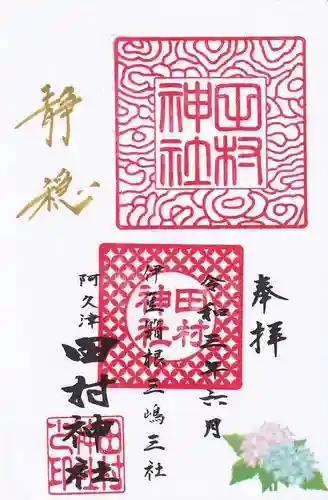 奉拝
令和三年六月
伊豆箱根三嶋三社
阿久津
田村神社
静穏
田村神社
田村神社